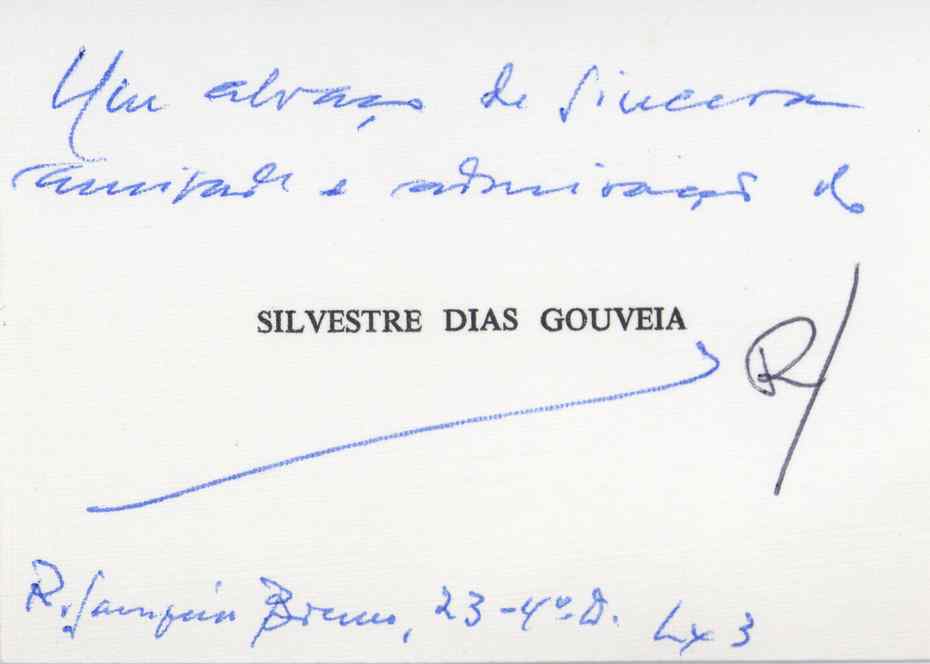 Um abraço de sincera
amizade e admiração do
SILVESTRE DIAS GOUVEIA
R/
R. Sampaio Bruno, 23-4º-D. Lx 3